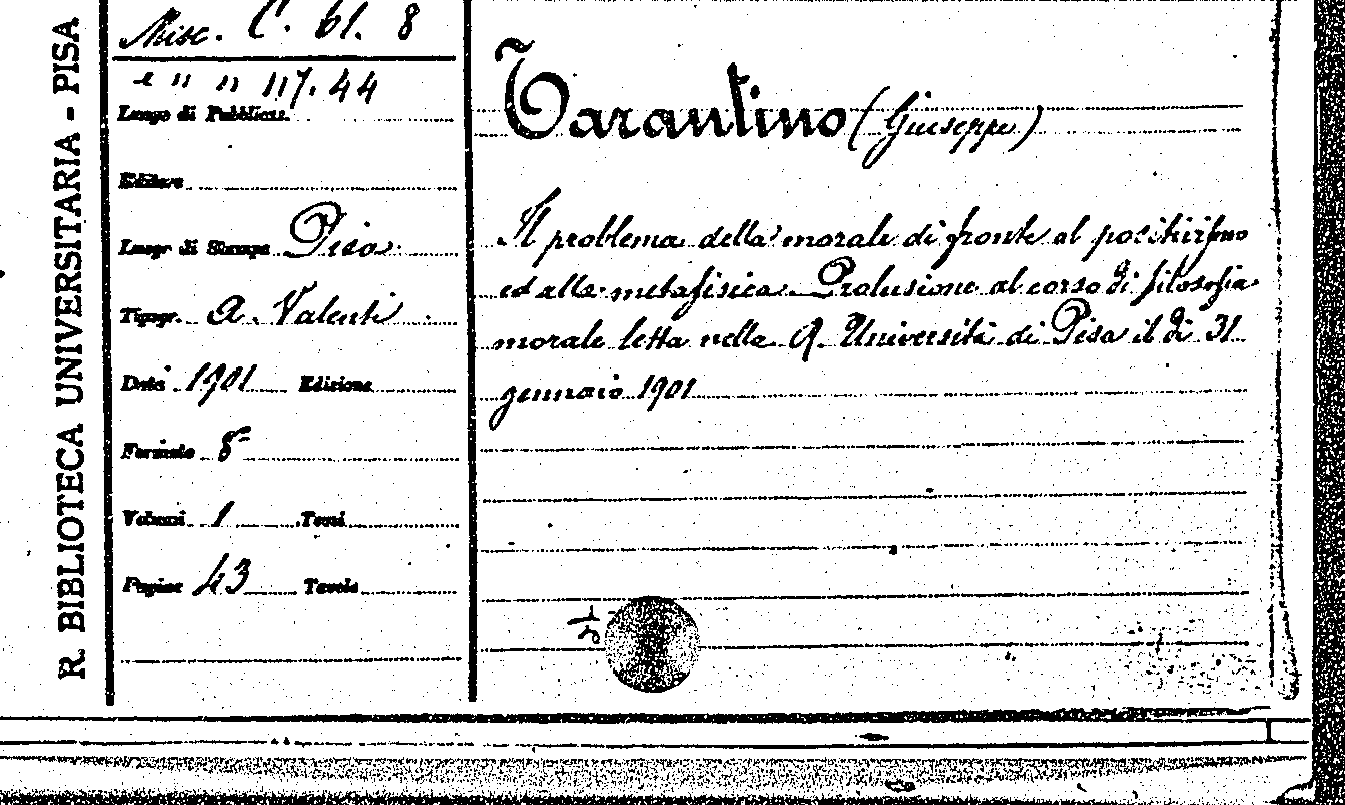 R. BIBLIOTECA UNIVERSITARIA - PISA
Misc. C. 61. 8
e " " 117.44
Luogo di Pubblicaz.
Editore
Luogo di Stampa Pisa
Tipogr. A. Valenti
Data 1901 Edizione
Formato 8°
Volumi 1 Tomi
Pagine 43 Tavole
Tarantino (Giuseppe)
Il problema della morale di fronte al positivismo
ed alla metafisica. Prolusione al corso di filosofia
morale letta nella R. Università di Pisa il dì 31
gennaio 1901